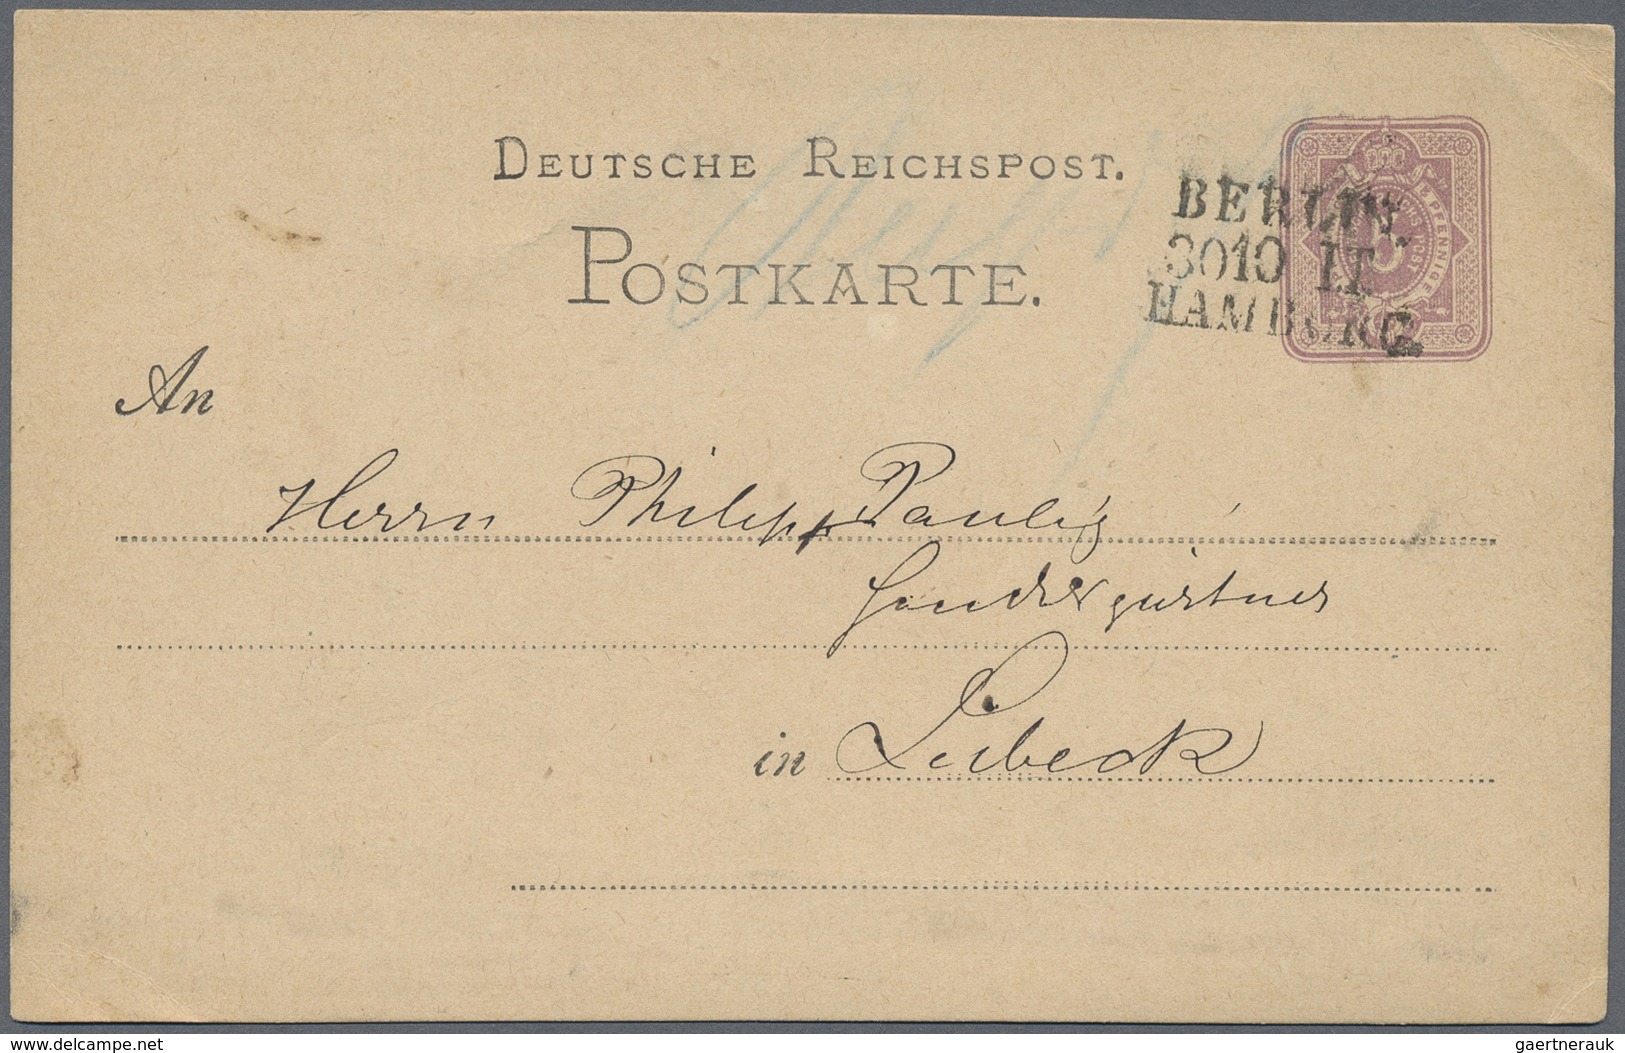 DEUTSCHE REICHSPOST.
POSTKARTE.
BERLIN
3010 I.T.
HAMBURG.
FÜNF PFENNIGE
5
An
Herrn Philipp Paulig
Handelsgärtner
in Lübeck
delcampe.net
gaertnerauk